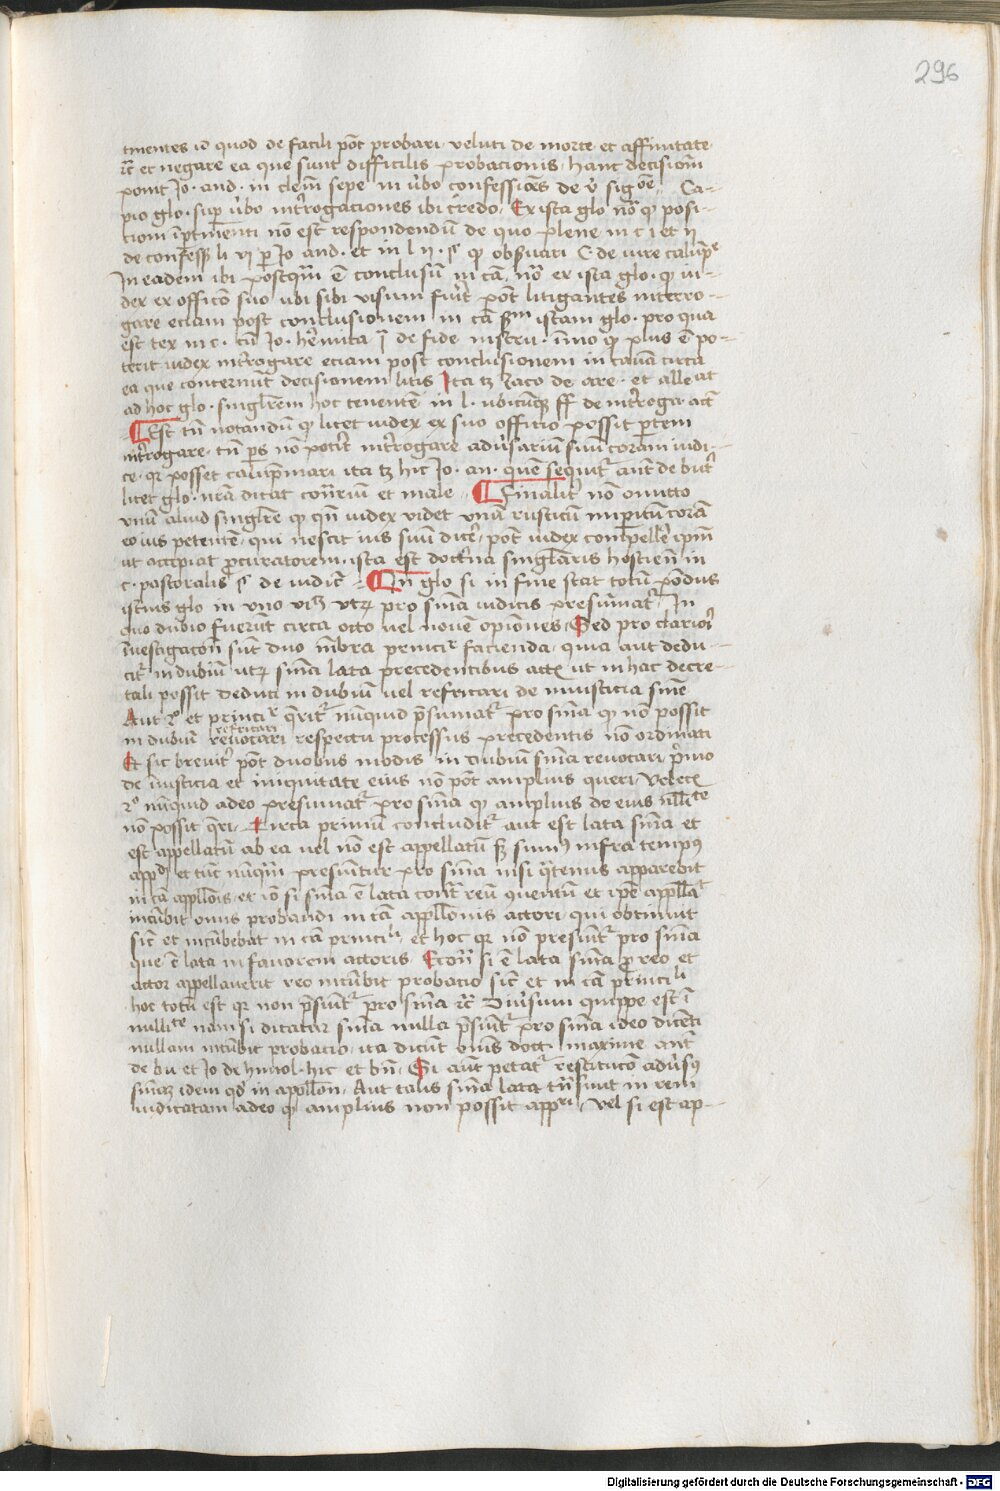 296
tinentes id quod de facili pōt probari veluti de morte et affinitate
rc̄ et negare ea que sunt difficilis probacionis hanc decisiom̄
ponit Jo. and. in clem̄ sepe in v̓bo confessiōes de v̓ sigōe. Ca-
pio glo. sup v̓bo int̓rogaciones ibi credo. Ex ista glo nō ꝙ posi-
tiom īptinenti nō est respondendū de quo plene in c i et ii
de confess̄ li vi p Jo and. et in l ii
In eadem ibi postqꝫ ē conclusū in cā nō ex ista glo. ꝙ iu-
dex ex officō suo ubi sibi visum fu̓it pōt litigantes interro-
gare eciam post conclusionem in cā istam glo. pro qua
est tex in c. cū Jo. de fide instru. īmo ꝙ plus ē po-
terit iudex int̓rogare eciam post conclusionem in causa circa
ea que concernūt decisionem litis Ita tꝫ Jaco de are. et allegat
ad hoc glo. singlr̄em hoc tenentē in l. ubicūqꝫ ff de int̓roga. act̄
Est tn̄ notandū ꝙ licet iudex ex suo officio possit ptem
int̓rogare. tn̄ ps nō pot̓it int̓rogare adu̓sariū suū coram iudi-
ce. qꝛ posset calūpmari ita tꝫ hic Jo. an. quē sequit̓ ant̄ de but̓
licet glo. nr̄a dicat cont̓riū et male Finalit̓ nō omitto
vnū aliud singlr̄e ꝙ qn̄ iudex videt vnū rusticū imperitū corā
eo ius petentē. qui nescit ius suū dic̓e. pōt iudex compelle̓ ipm̄
ut accipiat p̄curatorem. ista est doct̓ina singlaris hostien̄ in
c. pastoralis de iudic̄ In glo si in fine stat totū pondus
istius glo in vno vꝫ utꝝ pro sniā iudicis presumat̓. In
quo dubio fuerūt circa octo uel novē opiones. Sed pro clarioꝛi
īvestigacōn sūt duo mēbra princi facienda, quia aut dedu-
cit̓ in dubiū utꝝ sniā lata precedentibus act̄ ut in hac decre-
tali possit deduci in dubiū uel refricari de iniusticia sniē
Aut 2º et princi q̄rit̓ nūquid p̄sumat̓ pro sniā ꝙ nō possit
refricari
in dubiū revocari respectu processus precedentis nō ordinati
Et sic brevit̓ pōt duobus modis in dubiū sniā revocari p̓mo
de īusticia et iniquitate eius nō pōt amplius queri
2º nūquid adeo presumat̓ pro sniā ꝙ amplius de eius nlli^te
nō possit q̄ri. Circa primū concludit̓ aut est lata sniā et
est appellatū ab ea vel nō est appellatū sꝫ sum⁹ infra tempus
app^di et tūc nūqꝫ presumitur pro sniā nisi q̓tenus apparebit
in cā appllōis. et iō si sniā ē lata cont̓ reū et ip̄e
incūbit onus probandi in cā appllōnis actori qui obtinuit
sic̄ et incūbebat in cā princi^li. et hoc qꝛ nō presumit̓ pro sniā
que ē lata in favorem actoris Econ̄ si ē lata sniā p̄ reo et
actor appellaverit reo incūbit probacio sic̄ et in cā princi^li
hoc totū est qꝛ non p̄sumit̓ pro sniā rc̄ Diu̓sum quippe est ī
nulli^te nam si dicatur sniā nulla p̄sumit̓ pro sniā ideo dicēti
nullam incūbit probacio. ita dicūt om̄s doct. maxime ant̄
de bu et Jo de himol. hic et bn̄. Si aūt petat̓ restitucō adu̓sus
sniāꝫ idem qd̄ in appllōn. Aut talis sniā lata in rem
iudicatam adeo ꝙ amplius non possit app^ri. Vel si est ap-
Digitalisierung gefördert durch die Deutsche Forschungsgemeinschaft - DFG